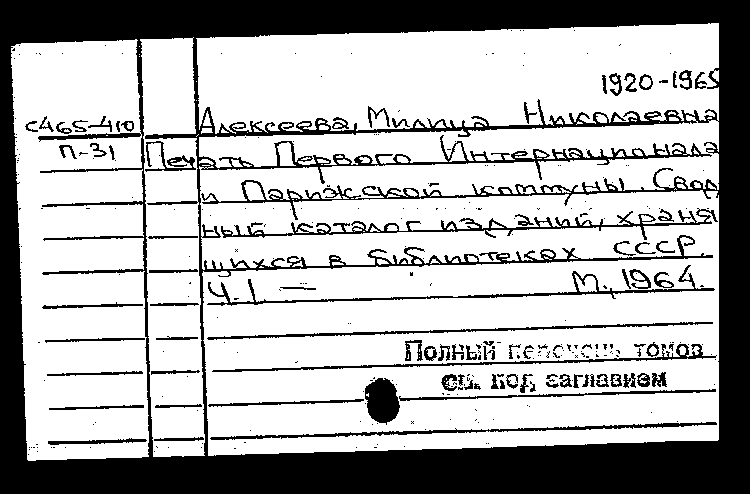 1920-1965
с465-410 Алексеева, Милица Николаевна
П-31 Печать Первого Интернационала
и Парижской коммуны. Свод
ный каталог изданий, храня
щихся в библиотеках СССР.
Ч.1 — М., 1964.
Полный перечень томов
см. под заглавием